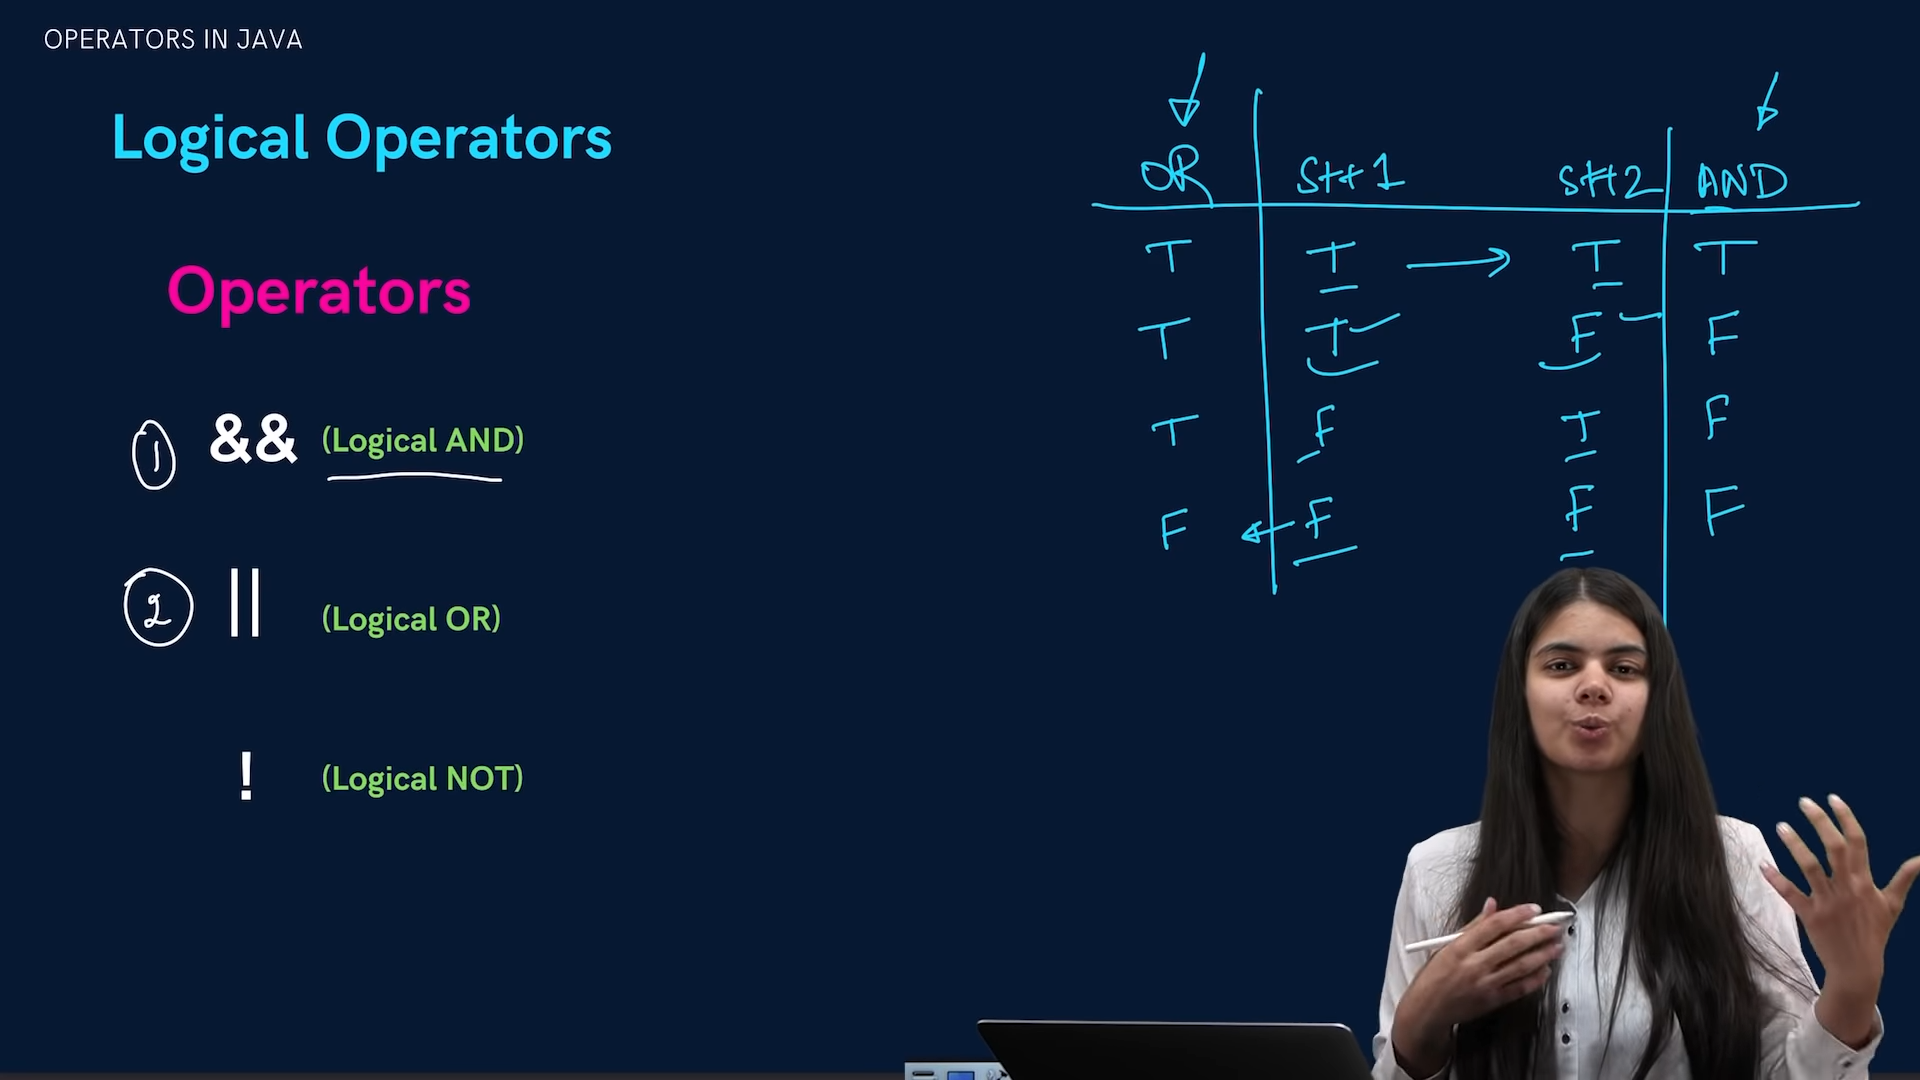 OPERATORS IN JAVA
Logical Operators
Operators
1 && (Logical AND)
2 || (Logical OR)
! (Logical NOT)
OR Stt 1 Stt 2 AND
T T → T T
T T F F
T F T F
F ← F F F